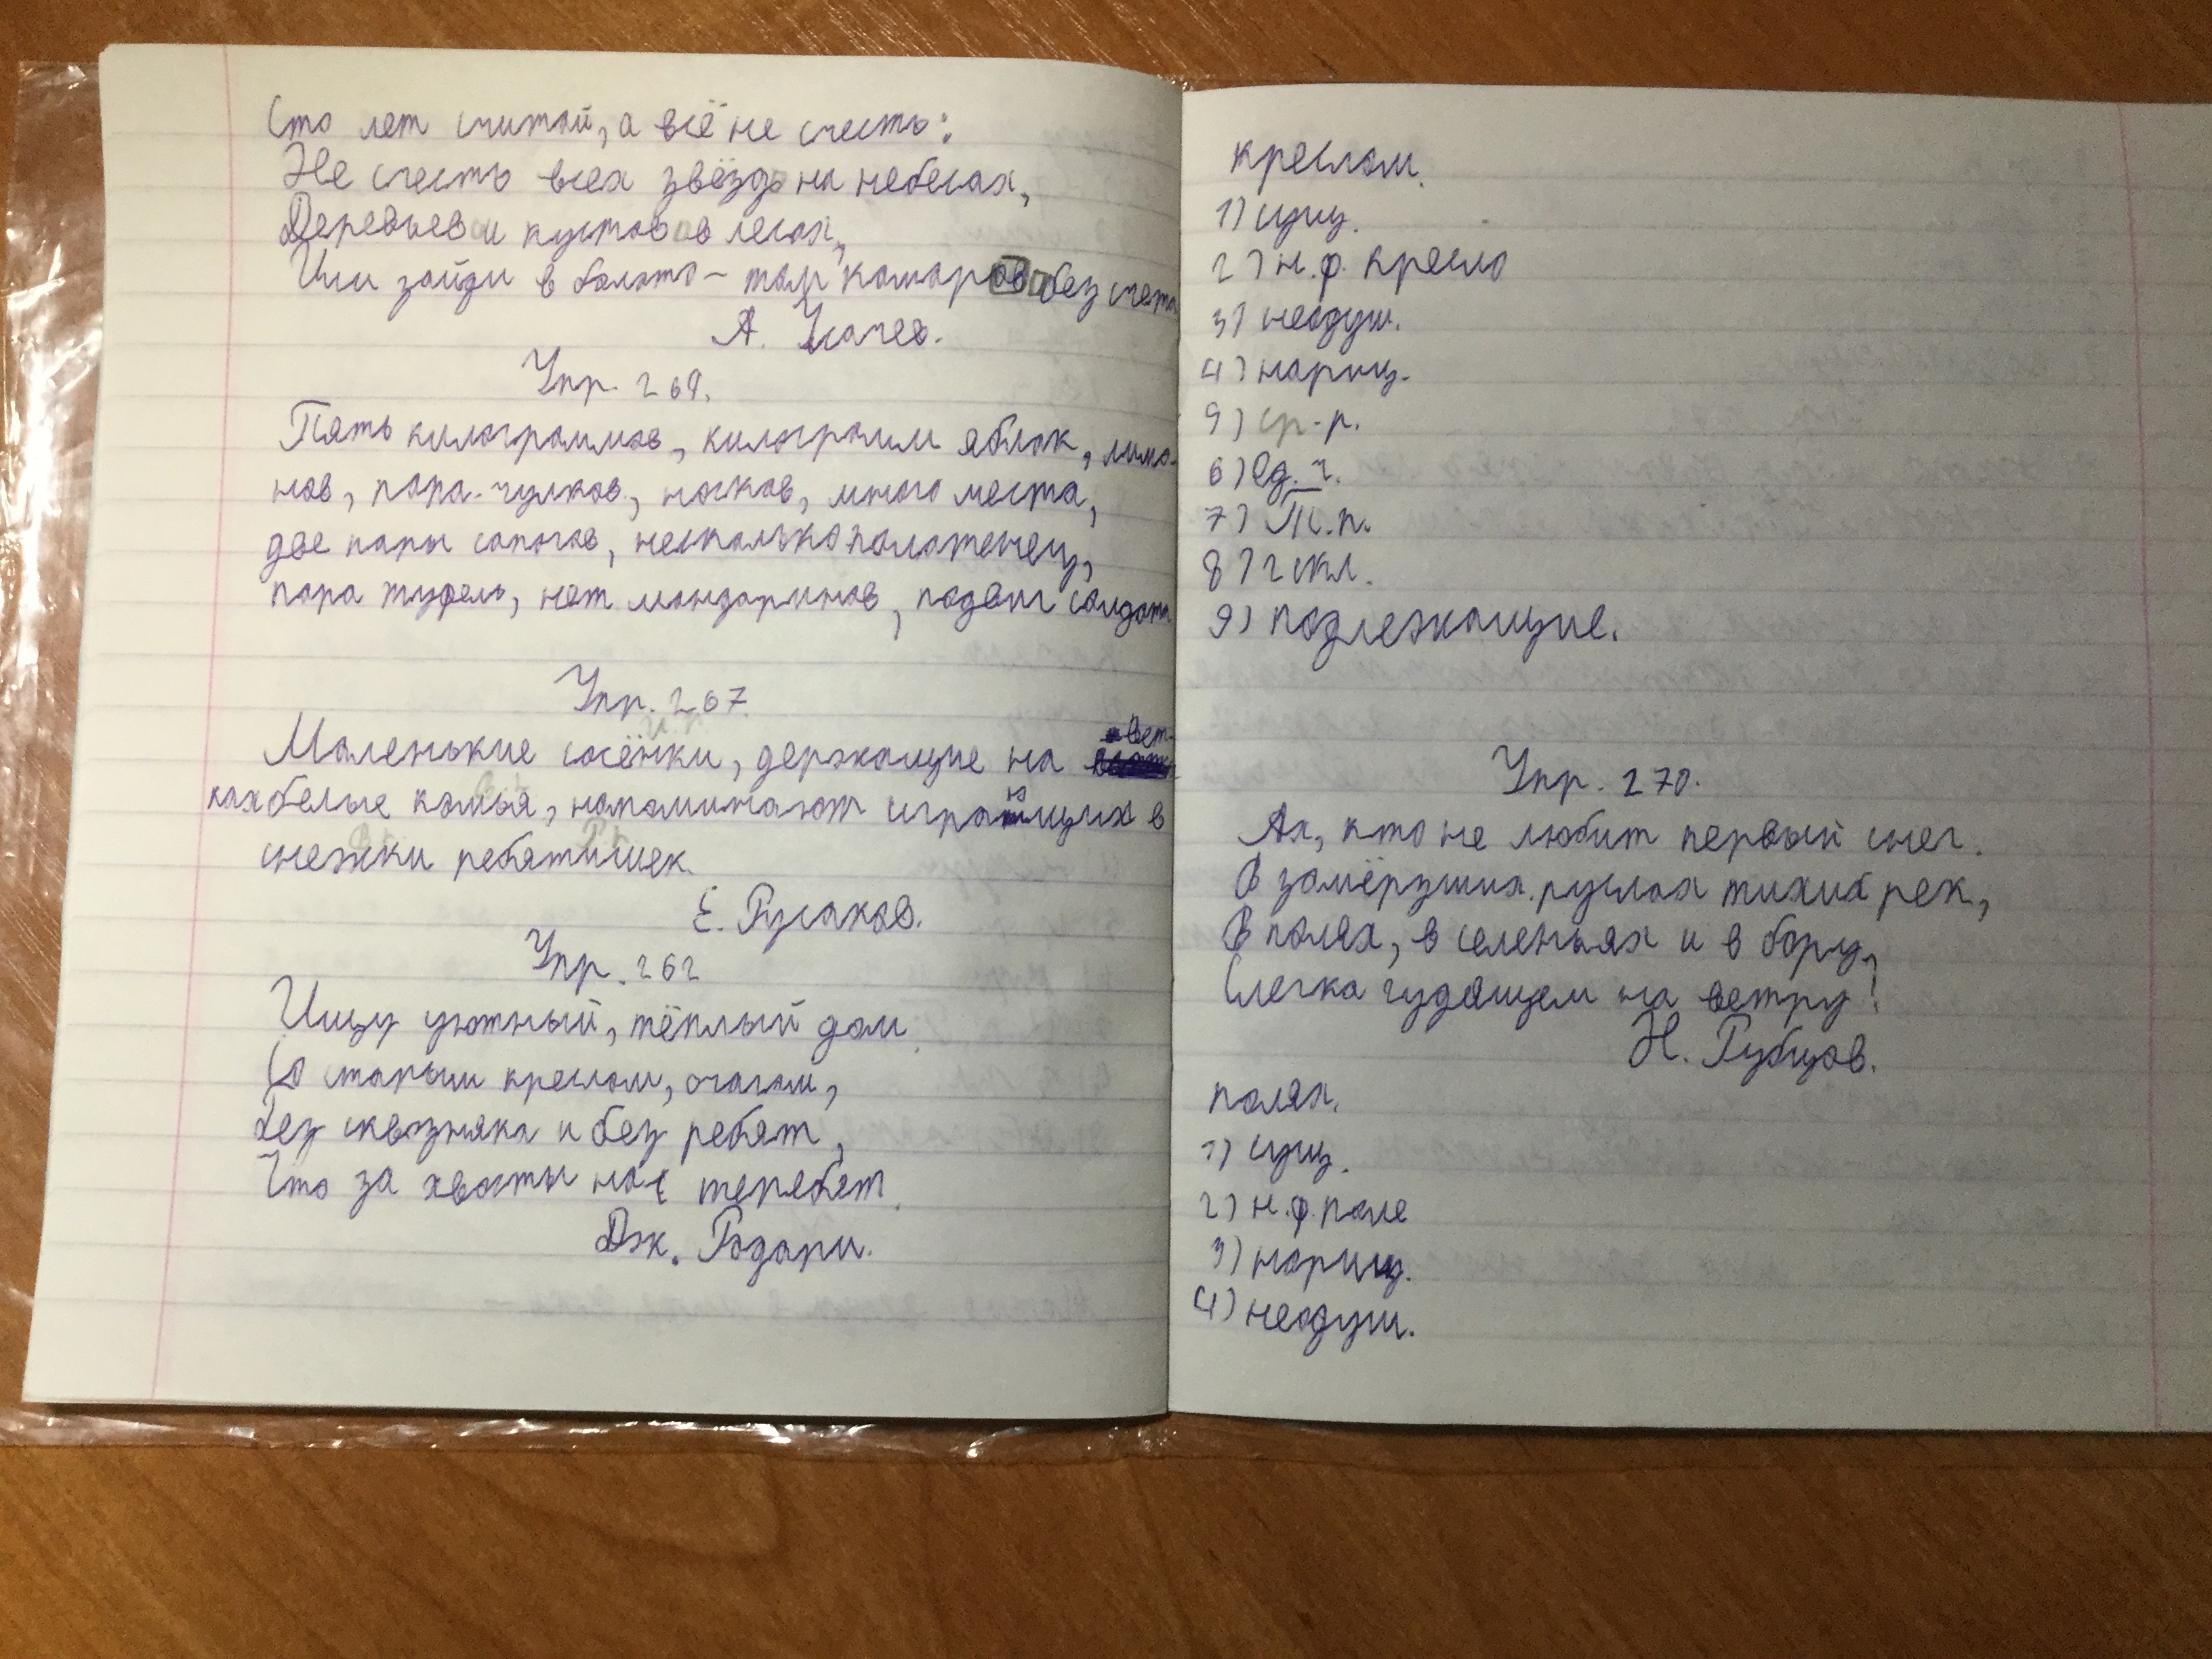 Сто лет считай, а всё не счесть:
Не счесть всех звёзд на небесах,
Деревьев и кустов в лесах,
Или зайди в болото – там комаров без счета
А. Усачев.
Упр. 269.
Пять килограммов, килограмм яблок, лимо-
нов, пара чулков, носков, много места,
две пары сапогов, несколько полотенец,
пара туфель, нет мандаринов, подвиг солдата
Упр. 267
И.п.
Маленькие сосёнки, держащие на вет-
ках белые комья, напоминают играющих в
снежки ребятишек.
Е. Русаков.
Упр. 262
Ищу уютный, тёплый дом
Со старым креслом, очагом,
Без сквозняка и без ребят,
Что за хвосты нас теребят.
Дж. Родари.
креслом.
1) сущ.
2) н.ф. кресло
3) неодуш.
4) нариц.
5) ср. р.
6) ед. ч.
7) Т.п.
8) 2 скл.
9) подлежащие.
Упр. 270.
Ах, кто не любит первый снег.
В замёрзших руслах тихих рек,
В полях, в селеньях и в бору,
Слегка гудящем на ветру!
Н. Рубцов.
полях.
1) сущ.
2) н.ф. поле
3) нариц.
4) неодуш.